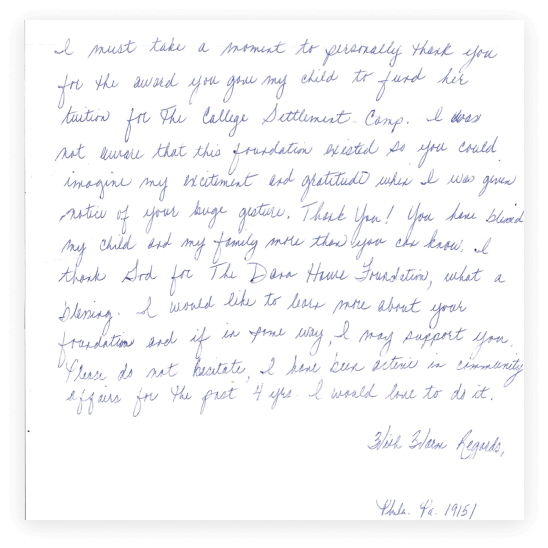 I must take a moment to personally thank you
for the award you gave my child to fund her
tuition for The College Settlement Camp. I was
not aware that this foundation existed so you could
imagine my excitement and gratitude when I was given
notice of your huge gesture. Thank You! You have blessed
my child and my family more than you can know. I
thank God for The Dana Howe Foundation, what a
blessing. I would like to learn more about your
foundation and if in some way, I may support you.
Please do not hesitate, I have been active in community
affairs for the past 4 yrs. I would love to do it.
With Warm Regards,
Phila. Pa. 19151